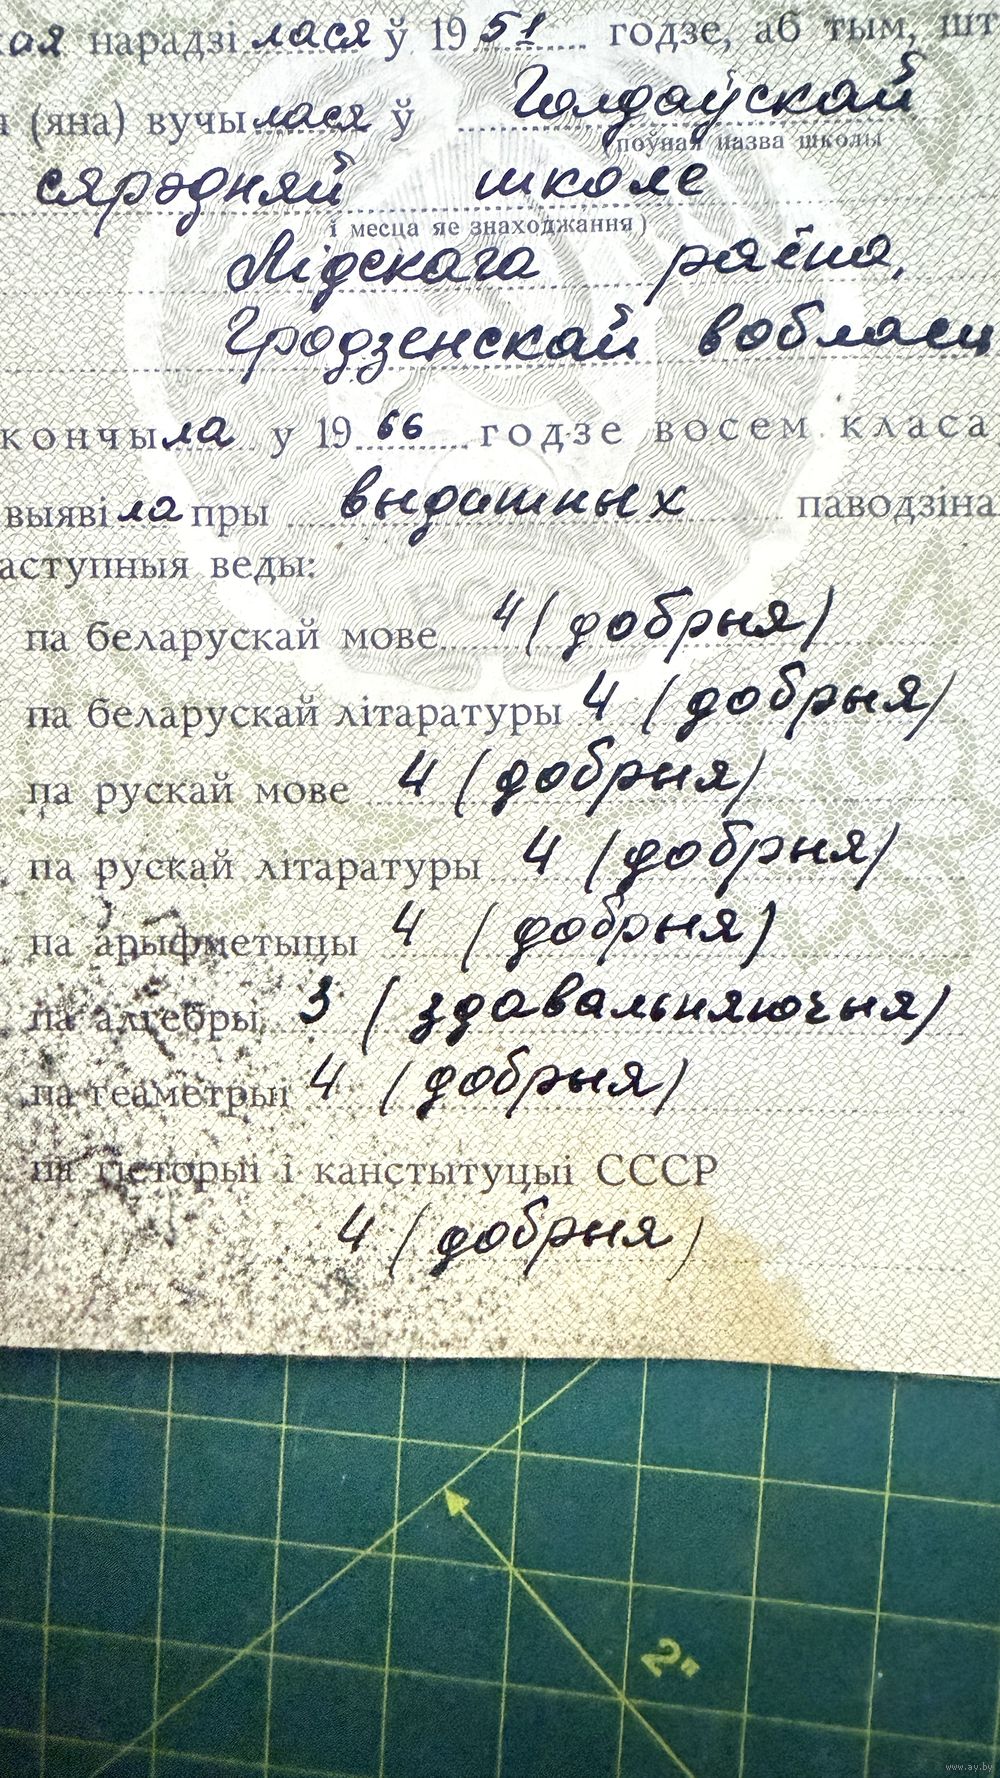 кая нарадзілася ў 1951 годзе, аб тым, шт
(яна) вучылася ў Голдаўскай
(поўная назва школы
сярэдняй школе
і месца яе знаходжання)
Лідскага раёна,
Гродзенскай вобласц
кончыла у 1966 годзе восем класа
выявіла пры выдатных паводзіна
аступныя веды:
па беларускай мове 4 (добрыя)
па беларускай літаратуры 4 (добрыя)
па рускай мове 4 (добрыя)
па рускай літаратуры 4 (добрыя)
па арыфметыцы 4 (добрыя)
па алгебры 3 (здавальняючыя)
па геаметрыі 4 (добрыя)
па гісторыі і канстытуцыі СССР
4 (добрыя)
2"
www.ay.by